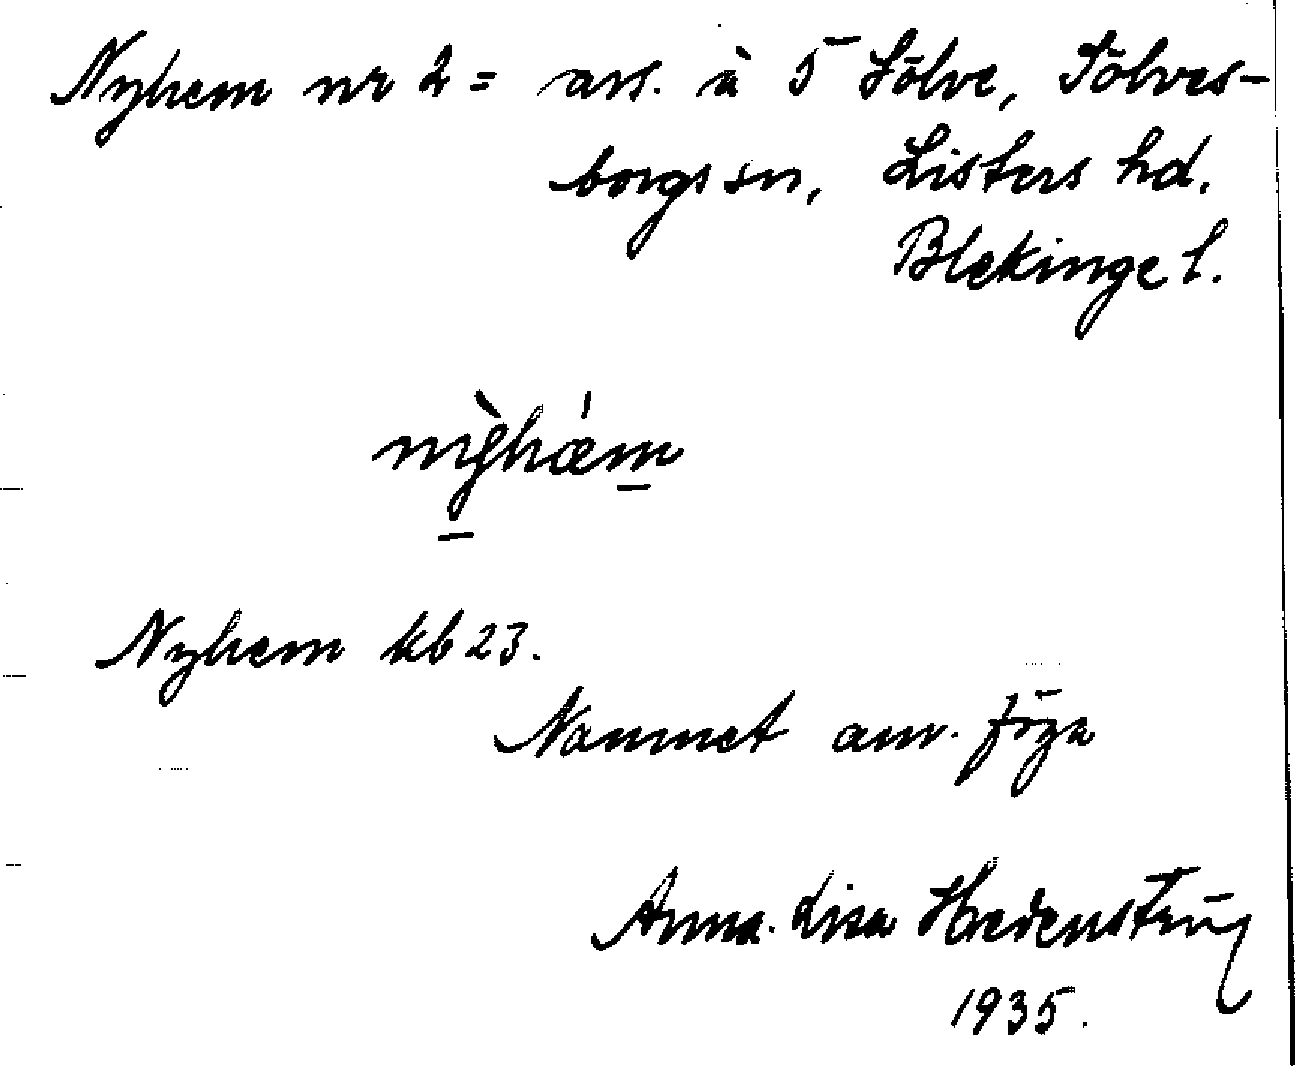 Nyhem nr 2 = avs. å 5 Sölve, Sölves-
borgs sn, Listers hd.
Blekinge l.
Nyhem kb 23.
Namnet anv. föga
Anna-Lisa
1935.